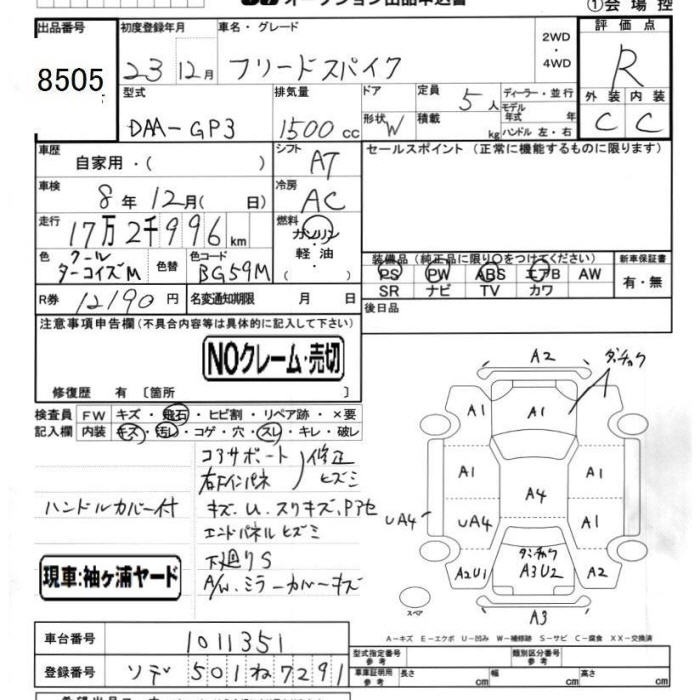 オークション出品申込書
①会場控
出品番号
8505
初度登録年月
23年12月
車名・グレード
フリードスパイク
2WD
・
4WD
評価点
R
外装 内装
C C
型式
DAA-GP3
排気量
1500cc
ドア
形状 W
定員
5人
積載
kg
ディーラー・並行
モデル年式 年
ハンドル 左・右
車歴
自家用・( )
シフト
AT
セールスポイント (正常に機能するものに限ります)
車検
8年12月( 日)
冷房
AC
走行
17万2千996km
燃料
ガソリン
軽油
・
色
クール
ターコイズM
色替
色コード
BG59M
装備品 (純正品に限り○をつけてください)
PS PW ABS エアB AW
SR ナビ TV カワ
新車保証書
有・無
R券 12190円
名変通知期限 月 日
後日品
注意事項申告欄(不具合内容等は具体的に記入して下さい)
NOクレーム・売切
修復歴 有〔箇所 〕
検査員記入欄
FW キズ・飛石・ヒビ割・リペア跡・×要
内装 キズ・汚レ・コゲ・穴・スレ・キレ・破レ
コアサポート
右Fインパネ
修正
ヒズミ
ハンドルカバー付
キズ、U、スリキズ、Pアセ
エンドパネルヒズミ
下廻りS
A/W、ミラーカバーキズ
現車:袖ヶ浦ヤード
A2
ダンチョウ
A1
A1
A1
A1
A4
UA4
UA4
A1
ダンチョウ
A3U2
A2U1
A2
A3
スペア
A-キズ E-エクボ U-凹み W-補修跡 S-サビ C-腐食 XX-交換済
車台番号
1011351
登録番号
ソデ501ね7291
型式指定番号
参考
類別区分番号
参考
車庫証明用
参考
長さ cm
幅 cm
高さ cm